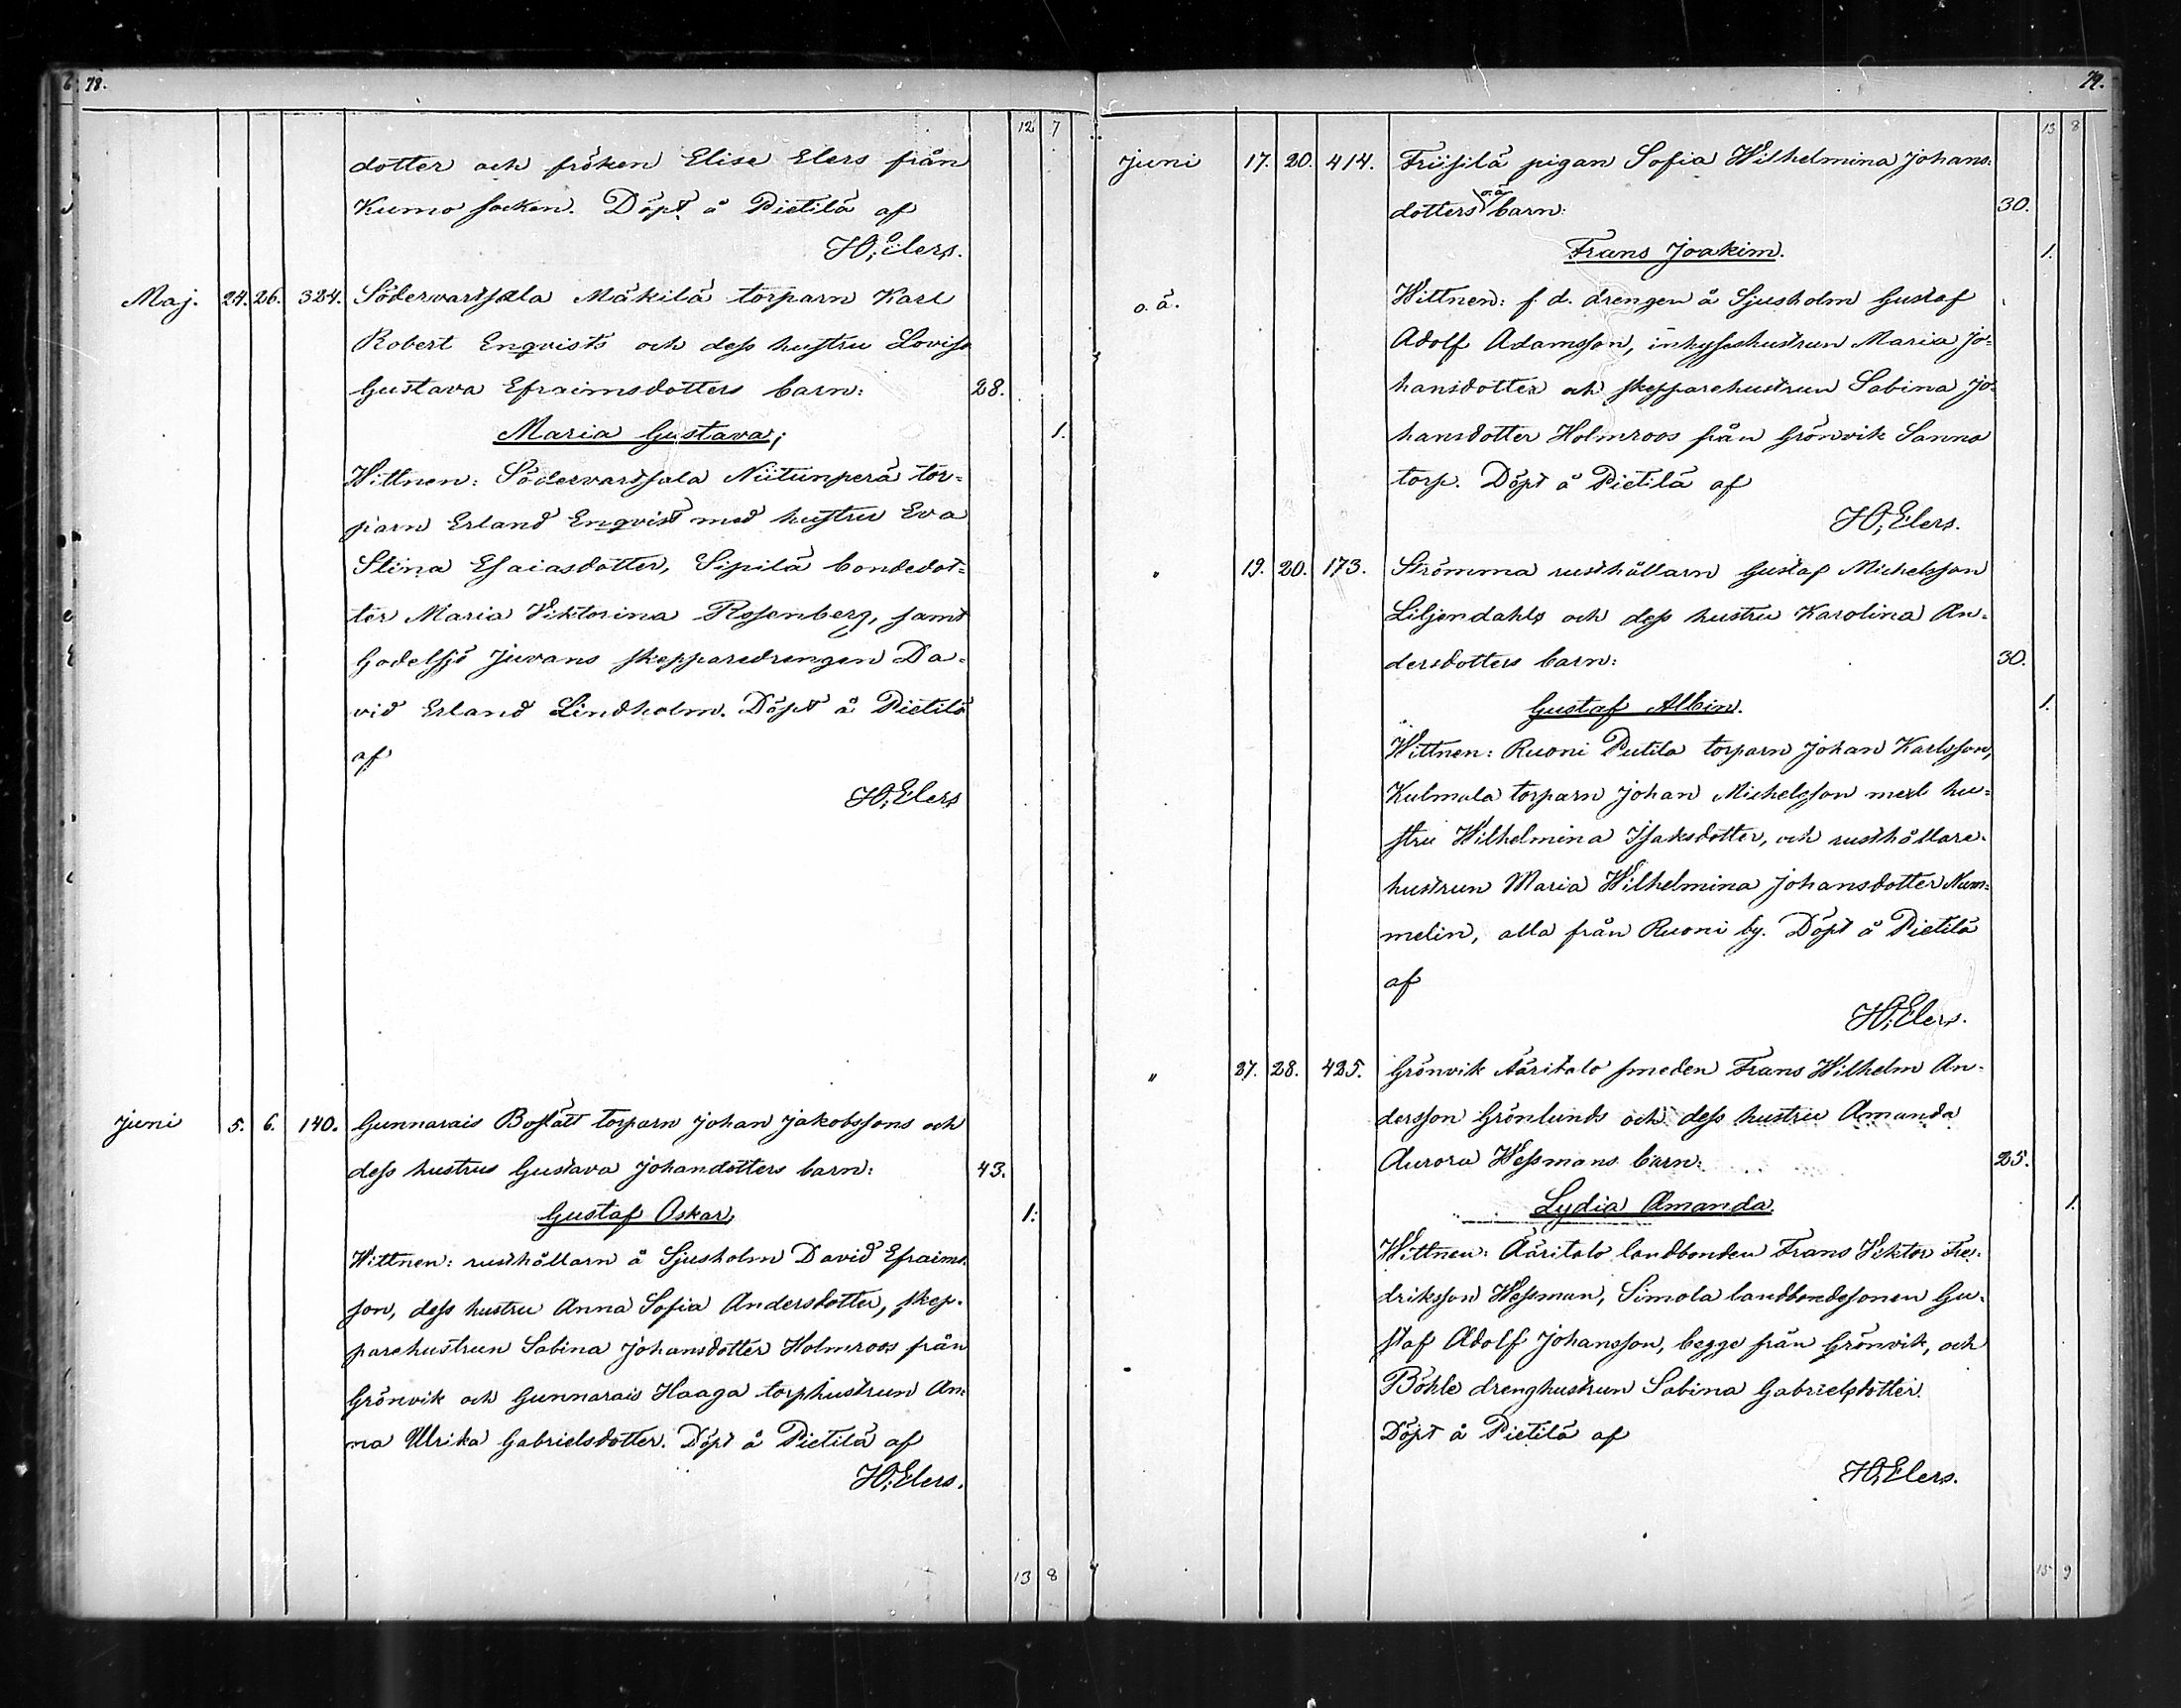 78.
12 7
dotter och fröken Elise Elers från
Kumo socken. Döpt å Pietilä af
Hj. Elers.
Maj. 24. 26. 324. Södervartsala Mäkilä torparn Karl
Robert Enqvists och dess hustru Lovisa
Gustava Efraimsdotters barn: 28.
Maria Gustava; 1.
Wittnen: Södervartsala Niitunperä tor=
parn Erland Enqvist med hustru Eva
Stina Esaiasdotter, Sipilä bondedot=
ter Maria Viktorina Rosenberg, samt
Godelsjö Juvans skepparedrengen Da=
vid Erland Lindholm. Döpt å Pietilä
af
Hj. Elers
Juni 5. 6. 140. Gunnarais Bosätt torparn Johan Jakobssons och
dess hustrus Gustava Johandotters barn: 43.
Gustaf Oskar, 1.
Wittnen: rusthållarn å Sjusholm David Efraims=
son, dess hustru Anna Sofia Andersdotter, skep=
parehustrun Sabina Johansdotter Holmroos från
Grönvik och Gunnarais Haaga torphustrun An=
na Ulrika Gabrielsdotter. Döpt å Pietilä af
Hj. Elers.
13 8
79.
13 8
Juni 17. 20. 414. Friisilä pigan Sofia Wilhelmina Johans=
dotters o.ä. barn: 30.
Frans Joakim. 1.
o.ä. Wittnen: f. d. drengen å Sjusholm Gustaf
Adolf Adamsson, inhyseshustrun Maria Jo=
hansdotter och skepparehustrun Sabina Jo=
hansdotter Holmroos från Grönvik Sanno
torp. Döpt å Pietilä af
Hj. Elers.
" 19. 20. 173. Strömma rusthållarn Gustaf Michelsson
Liljendahls och dess hustru Karolina An=
dersdotters barn: 30.
Gustaf Albin. 1.
Wittnen: Ruoni Putila torparn Johan Karlsson,
Kulmala torparn Johan Michelsson med hu=
stru Wilhelmina Isaksdotter, och rusthållare=
hustrun Maria Wilhelmina Johansdotter Num=
melin, alla från Ruoni by. Döpt å Pietilä
af
Hj. Elers.
" 27. 28. 425. Grönvik Ääritalo smeden Frans Wilhelm An=
dersson Grönlunds och dess hustru Amanda
Aurora Wessmans barn: 25.
Lydia Amanda 1.
Wittnen: Ääritalo landbonden Frans Viktor Fre=
driksson Wessman, Simola landbondesonen Gu=
staf Adolf Johansson, begge från Grönvik, och
Böhle drenghustrun Sabina Gabrielsdotter.
Döpt å Pietilä af
Hj. Elers.
15 9